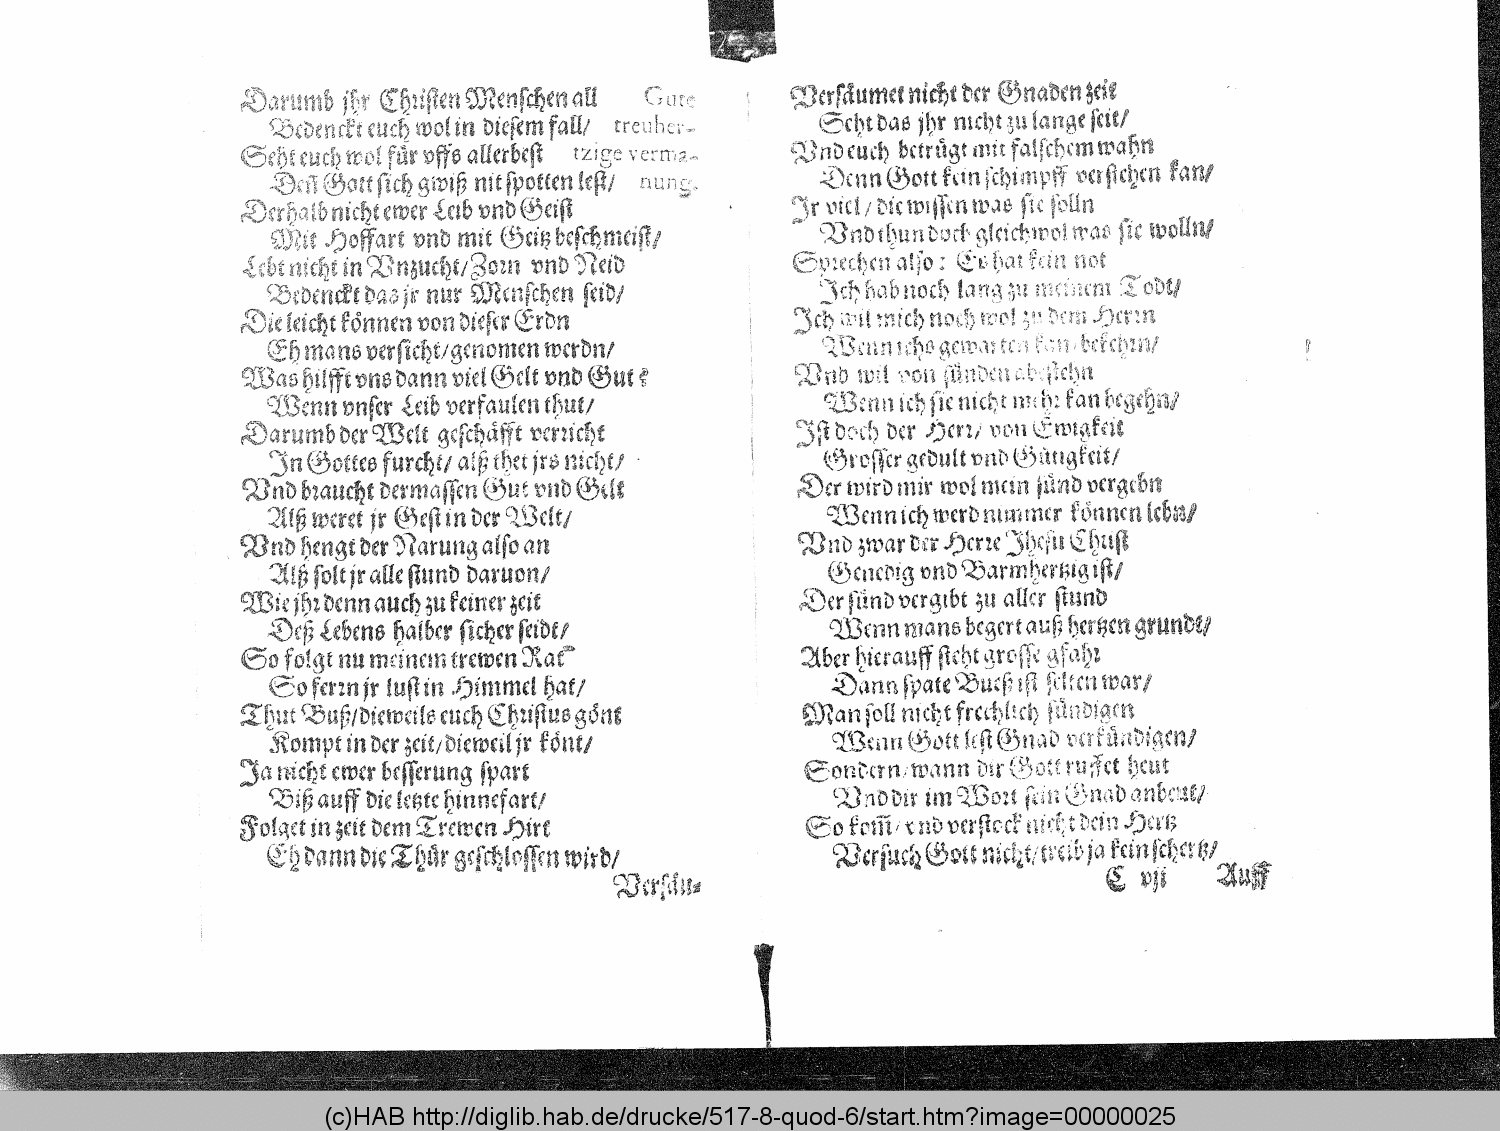 Darumb jhr Christen Menschen all
Gute
Bedenckt euch wol in diesem fall/
treuher-
Seht euch wol für vffs allerbest
tzige verma-
Deñ Gott sich gwiß nit spotten lest/
nung.
Derhalb nicht ewer Leib vnd Geist
Mit Hoffart vnd mit Geitz beschmeist/
Lebt nicht in Vnzucht/Zorn vnd Neid
Bedenckt das jr nur Menschen seid/
Die leicht können von dieser Erdn
Eh mans versicht/genomen werdn/
Was hilfft vns dann viel Gelt vnd Gut?
Wenn vnser Leib verfaulen thut/
Darumb der Welt geschäfft verricht
In Gottes furcht/ alß thet jrs nicht/
Vnd braucht dermassen Gut vnd Gelt
Alß weret jr Gest in der Welt/
Vnd hengt der Narung also an
Alß solt jr alle stund daruon/
Wie jhr denn auch zu keiner zeit
Deß Lebens halber sicher seidt/
So folgt nu meinem trewen Rat
So ferrn jr lust in Himmel hat/
Thut Buß/dieweils euch Christus gönt
Kompt in der zeit/dieweil jr könt/
Ja nicht ewer besserung spart
Biß auff die letzte hinnefart/
Folget in zeit dem Trewen Hirt
Eh dann die Thür geschlossen wird/
Versäu-
Versäumet nicht der Gnaden zeit
Seht das jhr nicht zu lange seit/
Vnd euch betrügt mit falschem wahn
Denn Gott kein schimpff verstehen kan/
Ir viel/ die wissen was sie solln
Vnd thun doch gleichwol was sie wolln/
Sprechen also: Es hat kein not
Ich hab noch lang zu meinem Todt/
Ich wil mich noch wol zu dem Herrn
Wenn ichs gewarten kan/bekehrn/
Vnd wil von sünden abstehn
Wenn ich sie nicht mehr kan begehn/
Ist doch der Herr/ von Ewigkeit
Grosser gedult vnd Gütigkeit/
Der wird mir wol mein sünd vergebn
Wenn ich werd nimmer können lebn/
Vnd zwar der Herre Jhesu Christ
Genedig vnd Barmhertzig ist/
Der sünd vergibt zu aller stund
Wenn mans begert auß hertzen grundt/
Aber hierauff steht grosse gfahr
Dann spate Buß ist selten war/
Man soll nicht frechlich sündigen
Wenn Gott lest Gnad verkündigen/
Sondern/wann dir Gott ruffet heut
Vnd dir im Wort sein Gnad anbeut/
So kom̃/vnd verstock nicht dein Hertz
Versuch Gott nicht/treib ja kein schertz/
C vij
Auff
(c)HAB http://diglib.hab.de/drucke/517-8-quod-6/start.htm?image=00000025